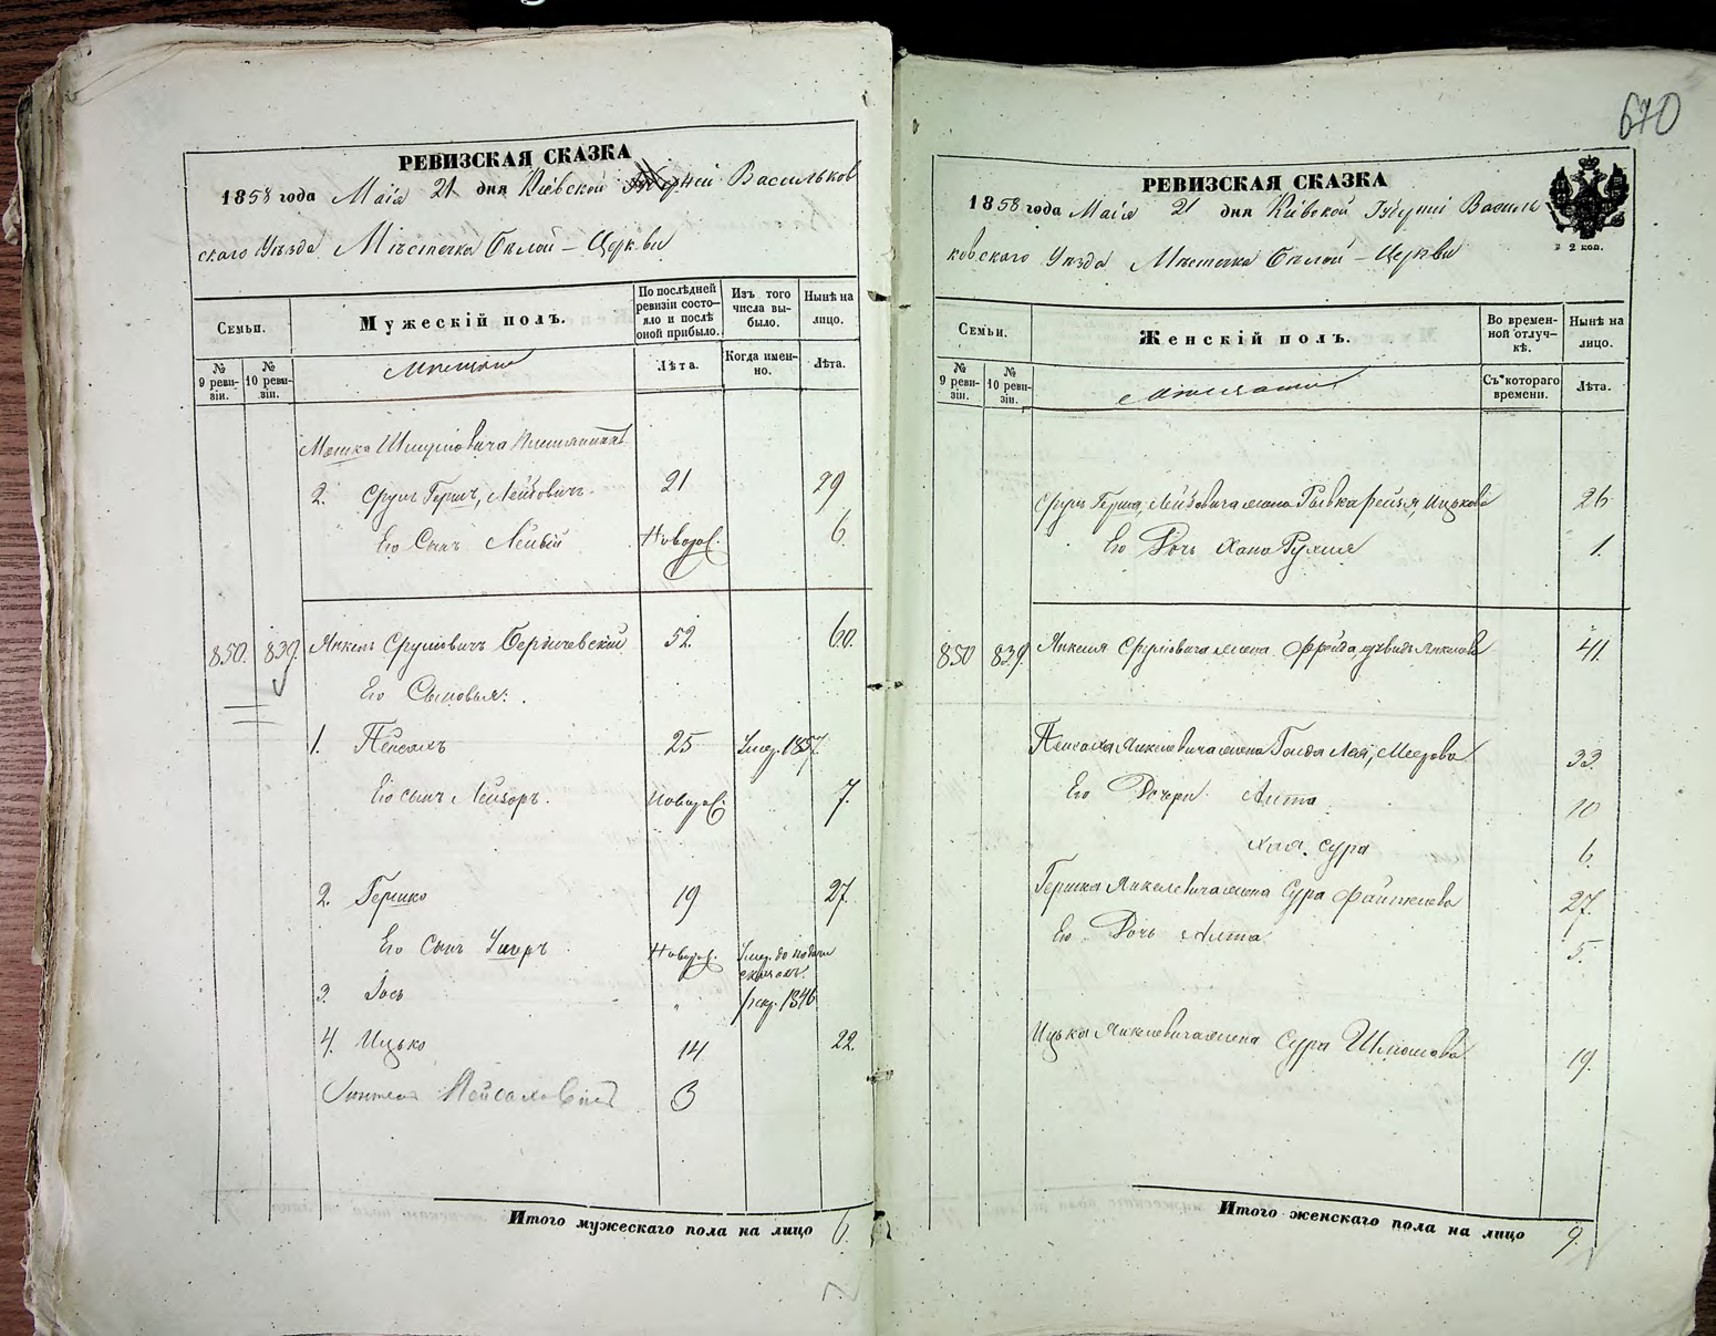 670
РЕВИЗСКАЯ СКАЗКА
1858 года Маія 21 дня Кіевской Губерніи Васильков
скаго Уѣзда Мѣстечка Бѣлой-Церкви
Семьи.
Мужескій полъ.
По послѣдней ревизіи состояло и послѣ оной прибыло.
Изъ того числа выбыло.
Нынѣ на лицо.
№ 9 ревизіи.
№ 10 ревизіи.
Мѣщане
Лѣта.
Когда именно.
Лѣта.
Мошка Шмулиовича
2. Сруль Гершъ, Лейбовичъ 21 29
Его Сынъ Лейбъ Новорож. 6.
850. 839. Янкель Срулиовичъ Бердичевскій 52. 60.
Его Сыновья:
1. Пейсахъ 25 Умер. 1857
Его сынъ Лейзоръ. Новорож. 7.
2. Гершко 19 27.
Его Сынъ Новорож. Умер. до подачи сказокъ.
3. Іось " рекр. 1846
4. Ицько 14 22.
Пейсаховичъ 3
Итого мужескаго пола на лицо 6.
РЕВИЗСКАЯ СКАЗКА
1858 года Маія 21 дня Кіевской Губерніи Василь
ковскаго Уѣзда Мѣстечка Бѣлой-Церкви
2 коп.
Семьи.
Женскій полъ.
Во временной отлучкѣ.
Нынѣ на лицо.
№ 9 ревизіи.
№ 10 ревизіи.
Мѣщанки
Съ котораго времени.
Лѣта.
Сруль Герша, Лейбовича жена Рывка Фейга, Ицькова 26
Его Дочь Хана Рухля 1.
850 839. Янкеля Срулиовича жена Фрейда, Янкелева 41.
Пейсаха Янкелевича жена Голда Лея, Меерова 33.
Его Дочери Анта 10
Хая Сура 6.
Гершка Янкелевича жена Сура 27.
Его Дочь Анта 5.
Ицька Янкелевича жена Сура Шлиомова 19.
Итого женскаго пола на лицо 9.